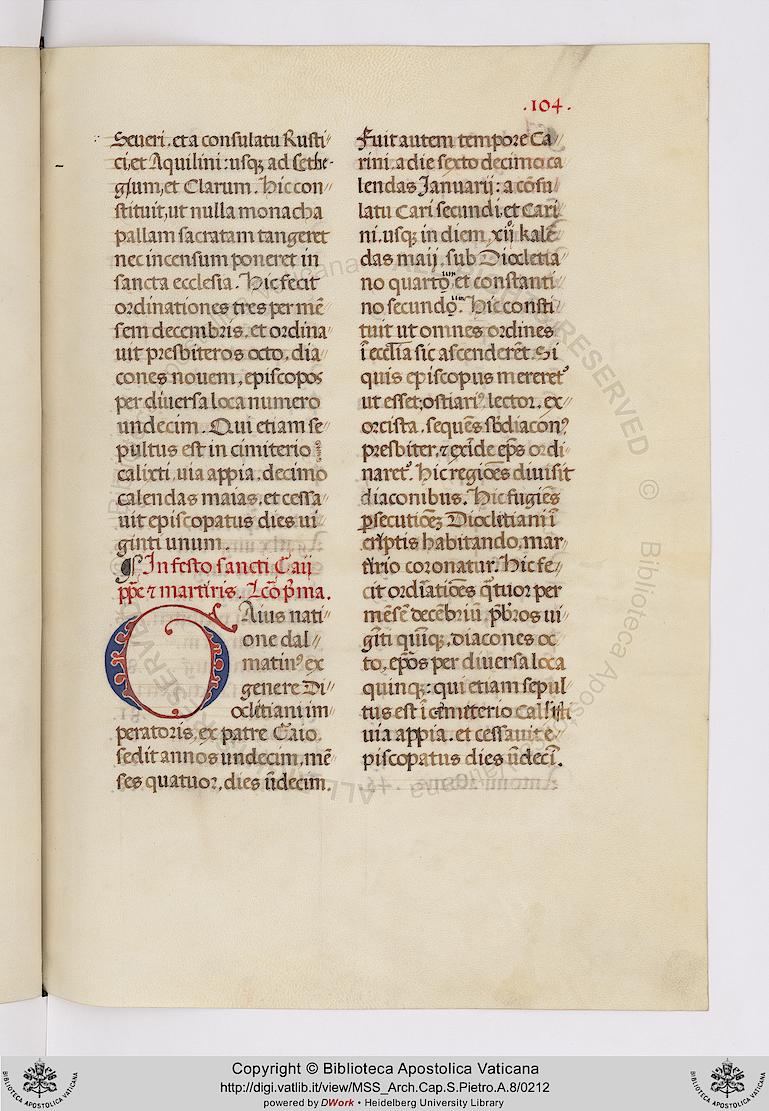 .104.
Seueri, et a consulatu Rusti//
ci, et Aquilini: usq; ad Cethe-
gium, et Clarum. Hic con//
stituit, ut nulla monacha
pallam sacratam tangeret
nec incensum poneret in
sancta ecclesia. Hic fecit
ordinationes tres per mē
sem decembris, et ordina//
uit presbiteros octo, dia//
cones nouem, episcopos
per diuersa loca numero
undecim. Qui etiam se//
pultus est in cimiterio
calixti, uia appia, decimo
calendas maias, et cessa//
uit episcopatus dies ui//
ginti unum.
¶ In festo sancti Caij
pp̄e ⁊ martiris. Lc̄o p̄ma.
GAius nati//
one dal//
matinꝰ ex
genere Di//
ocletiani im//
peratoris, ex patre Caio
sedit annos undecim, mē//
ses quatuor, dies ūdecim.
Fuit autem tempore Ca//
rini, a die sexto decimo ca
lendas Januarij: a cōsu//
latu Cari secundi, et Cari//
ni, usq; in diem, xij kalē//
das maij, sub Diocletia//
no quarto, et constanti//
no secundo. Hic consti//
tuit ut omnes ordines
ī ecclīa sic ascenderēt. Si
quis episcopus mereretꝰ
ut esset; ostiariꝰ lector, ex//
orcista, sequēs sbdiaconꝰ
presbiter, ⁊ exīde ep̄s ordi//
naretꝰ. Hic regiōes diuisit
diaconibus. Hic fugiēs
ꝑsecutiōez Diocletiani ī
criptis habitando, mar//
tirio coronatur. Hic fe//
cit ordīatiōes q̄tuor per
mēsē decēbriū, p̄bros ui//
gīti quīq;, diacones oc//
to, ep̄os per diuersa loca
quinq;: qui etiam sepul//
tus est ī cemiterio Calisti
uia appia. et cessauit e//
piscopatus dies ūdecī.
Copyright © Biblioteca Apostolica Vaticana
http://digi.vatlib.it/view/MSS_Arch.Cap.S.Pietro.A.8/0212
powered by DWork • Heidelberg University Library